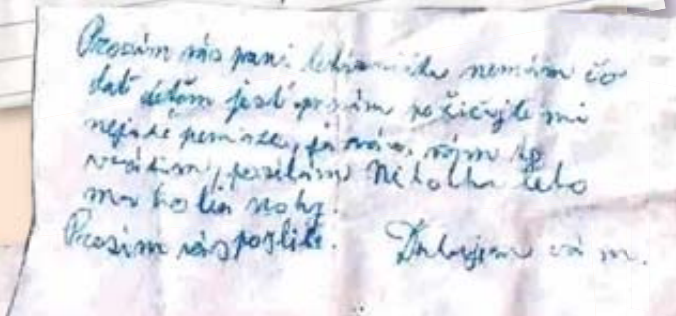 Prosím vás pani lekárnička nemám čo
dať deťom jesť prosím požičajte mi
nejaké peniaze, ja vám
vrátim, posielam Nikolku lebo
ma bolia nohy.
Prosím vás pošlite. Ďakujem vám.